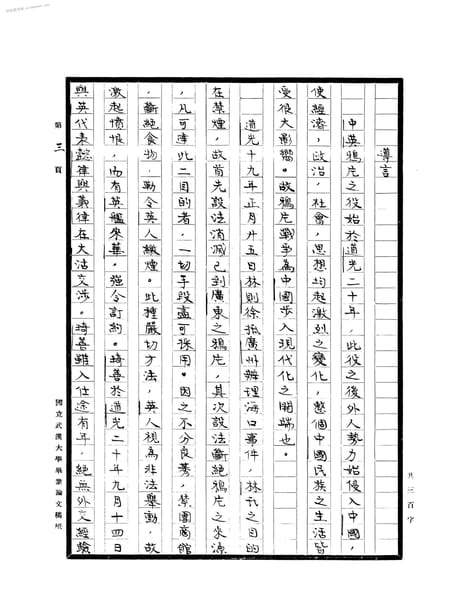 導言
中英鴉片之役始於道光二十年，此役之後外人勢力始侵入中國，
使經濟，政治，社會，思想均起激烈之變化，整個中國民族之生活皆
受很大影響。故鴉片戰爭為中國步入現代化之開端也。
道光十九年正月廿五日林則徐抵廣州辦理海口事件，林氏之目的
在禁煙，故首先設法消滅已到廣東之鴉片，其次設法斷絕鴉片之來源
，凡可達此二目的者，一切手段盡可採用。因之不分良莠，禁圍商館
，斷絕食物，勒令英人繳煙。此種嚴切方法，英人視為非法舉動，故
激起憤恨，而有英艦來華，強令訂約。琦善於道光二十年九月十四日
與英代表懿律與義律在大沽交涉。琦善雖入仕途有年，絕無外交經驗
第三頁
共三百字
國立武漢大學畢業論文稿紙